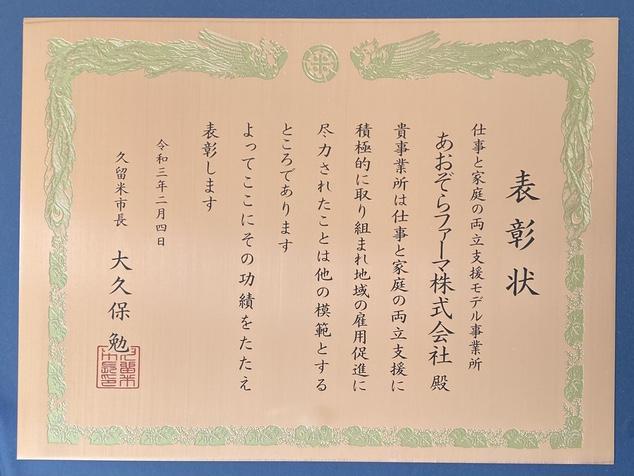 表彰状
仕事と家庭の両立支援モデル事業所
あおぞらファーマ株式会社 殿
貴事業所は仕事と家庭の両立支援に
積極的に取り組まれ地域の雇用促進に
尽力されたことは他の模範とする
ところであります
よってここにその功績をたたえ
表彰します
令和三年二月四日
久留米市長 大久保 勉